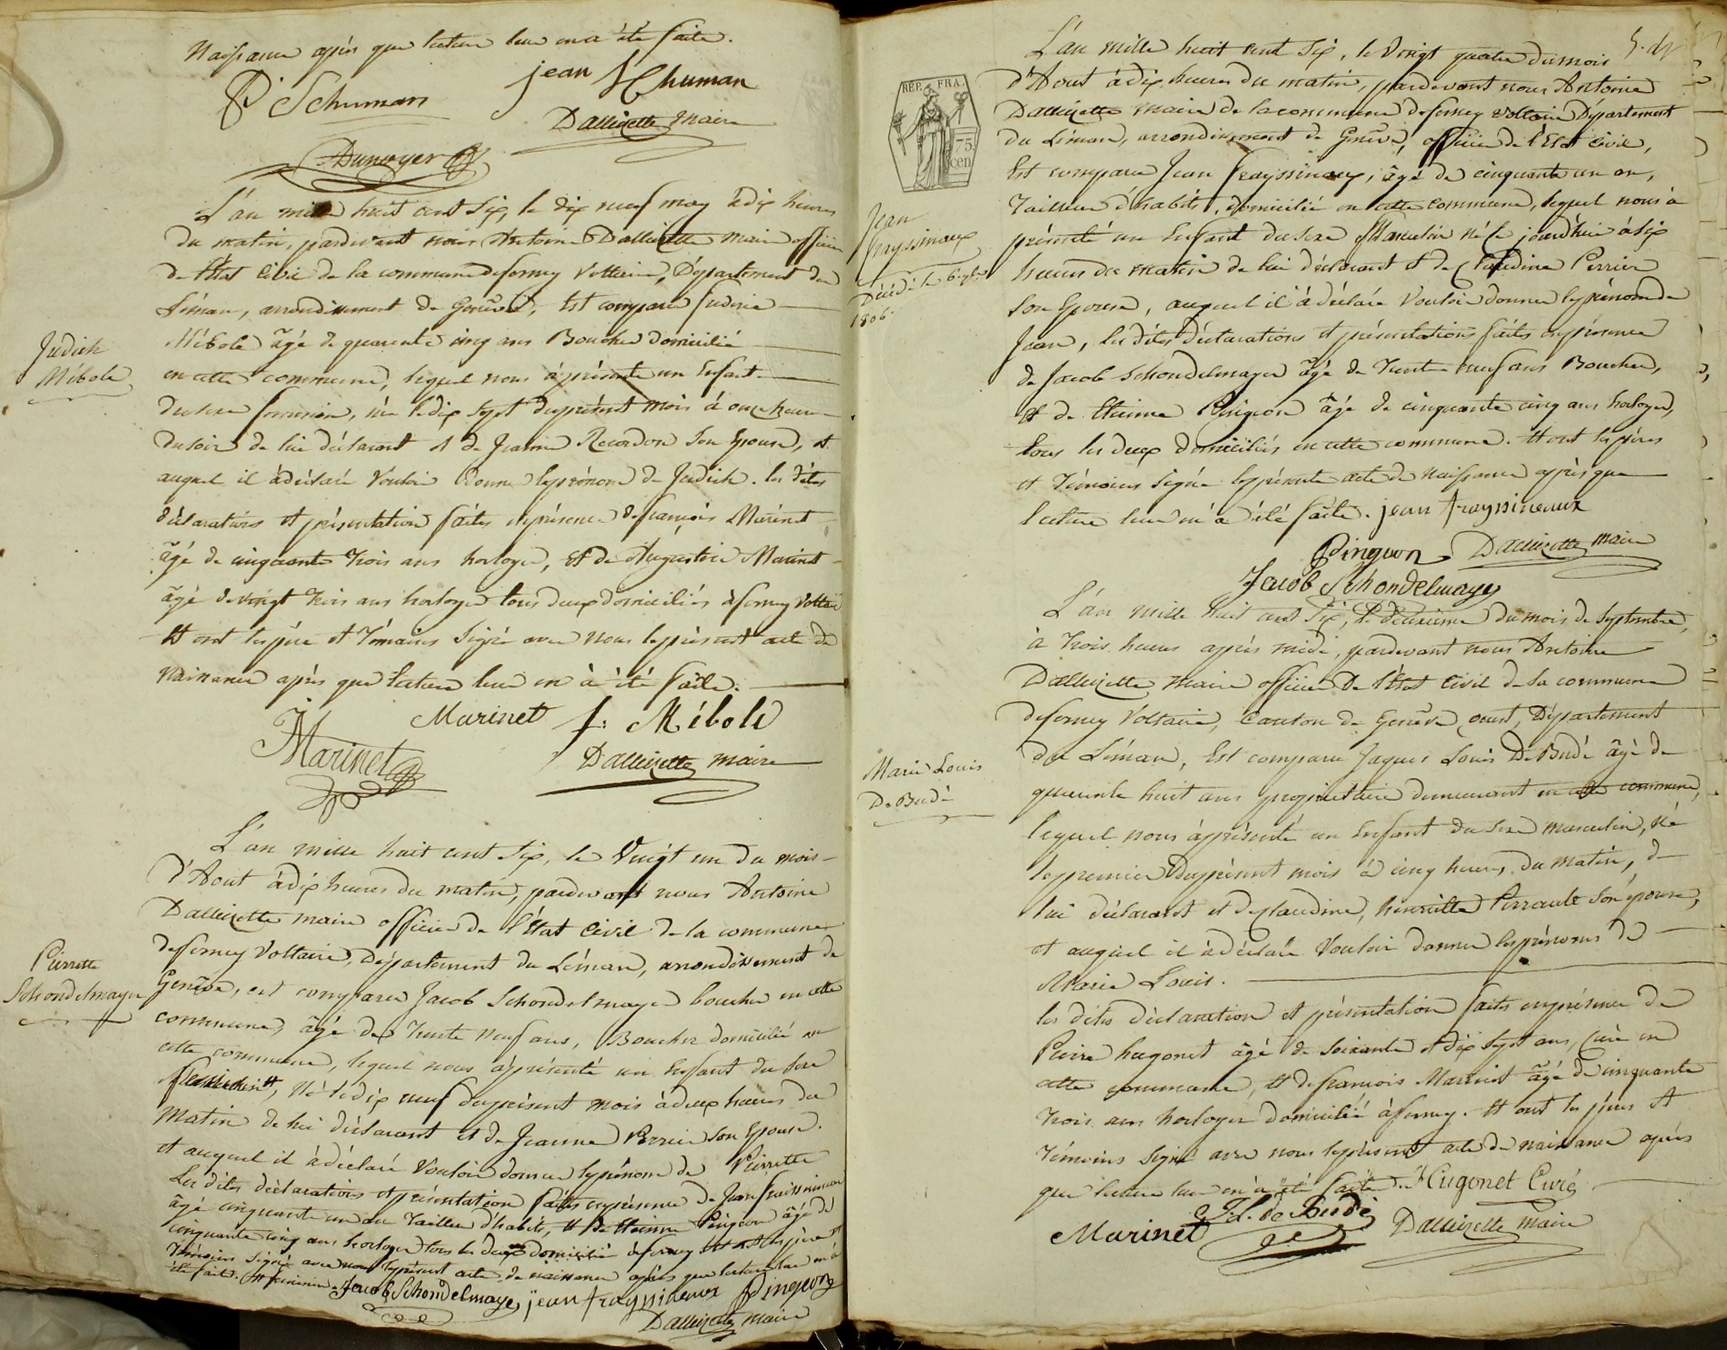 Naissance après que lecture leur en a été faite.
P. Schuman jean Schuman
Dallizette maire
Dunoyer
L'an mille huit cent Six, le dix neuf may à dix heures
du matin, pardevant nous Antoine Dallizette maire officier
de l'état Civil de la commune de ferney Voltaire, Département du
Léman, arrondissement de Genève, Est comparu
Judith
Mébole
Mébole âgé de quarente cinq ans Boucher domicilié
en cette commune, lequel nous à présenté un Enfant
du sexe feminin, née le dix sept du présent mois à onze heures
du soir de lui déclarant et de Jeanne Recordon Son Epouse, et
auquel il à déclaré Vouloir donner le prénom de Judith. les dites
déclarations et présentation faites en présence de françois Marinet
âgé de cinquante trois ans horloger, et de Augustin Marinet
âgé de vingt trois ans horloger tous deux domiciliés à ferney Voltaire
Et ont les père et Témoins Signé avec nous le présent acte de
naissance après que lecture leur en à été faite.
Marinet f: Mébole
Marinet
Dallizette maire
L'an mille huit cent Six, le Vingt un du mois
d'Aout à dix heures du matin, pardevant nous Antoine
Dallizette maire officier de l'État Civil de la commune
de ferney Voltaire, Département du Léman, arrondissement de
Pierrette
Schondelmayer
Genève, est comparu Jacob Schondelmayer boucher en cette
commune, âgé de trente neuf ans, Boucher domicilié en
cette commune, lequel nous à présenté un Enfant du sexe
Né le dix neuf du présent mois à deux heures du
matin de lui déclarant et de Jeanne Son Epouse.
et auquel il à déclaré Vouloir donner le prénom de Pierrette
Les dites déclarations et présentation faites en présence de Jean
âgé cinquante un an Tailleur d'habits, et de Etienne Pingeon âgé de
cinquante cinq ans horloger tous les deux domicilié à ferney Et ont les père et
Témoins signé avec nous le présent acte de naissance après que lecture leur en à
été faite. feminin Jacob Schondelmayer jean frayssineaux Pingeon
Dallizette maire
L'an mille huit cent Six, le Vingt quatre du mois
d'Aout à dix heures du matin, pardevant nous Antoine
REP. FRA.
75
cen
Dallizette maire de la commune de ferney Voltaire Département
du Léman, arrondissement de Genève, officier de l'Etat Civil,
Est comparu Jean frayssineaux, âgé de cinquante un an,
Tailleur d'habits, domicilié en cette commune, lequel nous à
Jean
frayssineaux
Décédé le
1806.
présenté un Enfant du sexe Masculin né ce jourd'hui à Six
heures du matin de lui déclarant et de Claudine Perrier
Son Epouse, auquel il à déclaré Vouloir donner le prénom de
Jean, les dites déclarations et présentations faites en présence
de Jacob Schondelmayer âgé de Trente neuf ans Boucher,
Et de Etienne Pingeon âgé de cinquante cinq ans horloger,
tous les deux domiciliés en cette commune. Et ont les pères
et Témoins Signé le présent acte de Naissance après que
lecture leur en à été faite. jean frayssineaux
Pingeon Dallizette maire
Jacob Schondelmayer
L'an mille huit cent Six, le deuxième du mois de Septembre,
à trois heures après midi, pardevant nous Antoine
Dallizette maire officier De l'état Civil de la commune
de ferney Voltaire, Canton de Genève ouest, Département
Marie Louis
De Budé
du Léman, Est comparu Jaques Louis De Budé âgé de
quarente huit ans propriétaire demeurant en cette commune,
lequel nous à présenté un Enfant du sexe masculin, né
le premier du présent mois à cinq heures du matin, de
lui déclarant et de Claudine, henriette Perrault Son épouse,
et auquel il à déclaré Vouloir donner les prénoms de
Marie Louis.
les dites déclaration et présentation faites en présence de
Pierre hugonet âgé de soixante et dix Sept ans, Curé en
cette commune, et de françois Marinet âgé De Cinquante
trois ans horloger domicilié à ferney. Et ont les pères Et
Témoins Signé avec nous le présent acte de naissance après
que lecture leur en à été faite. Hugonet Curé
J. L. de Budé
Marinet Dallizette maire